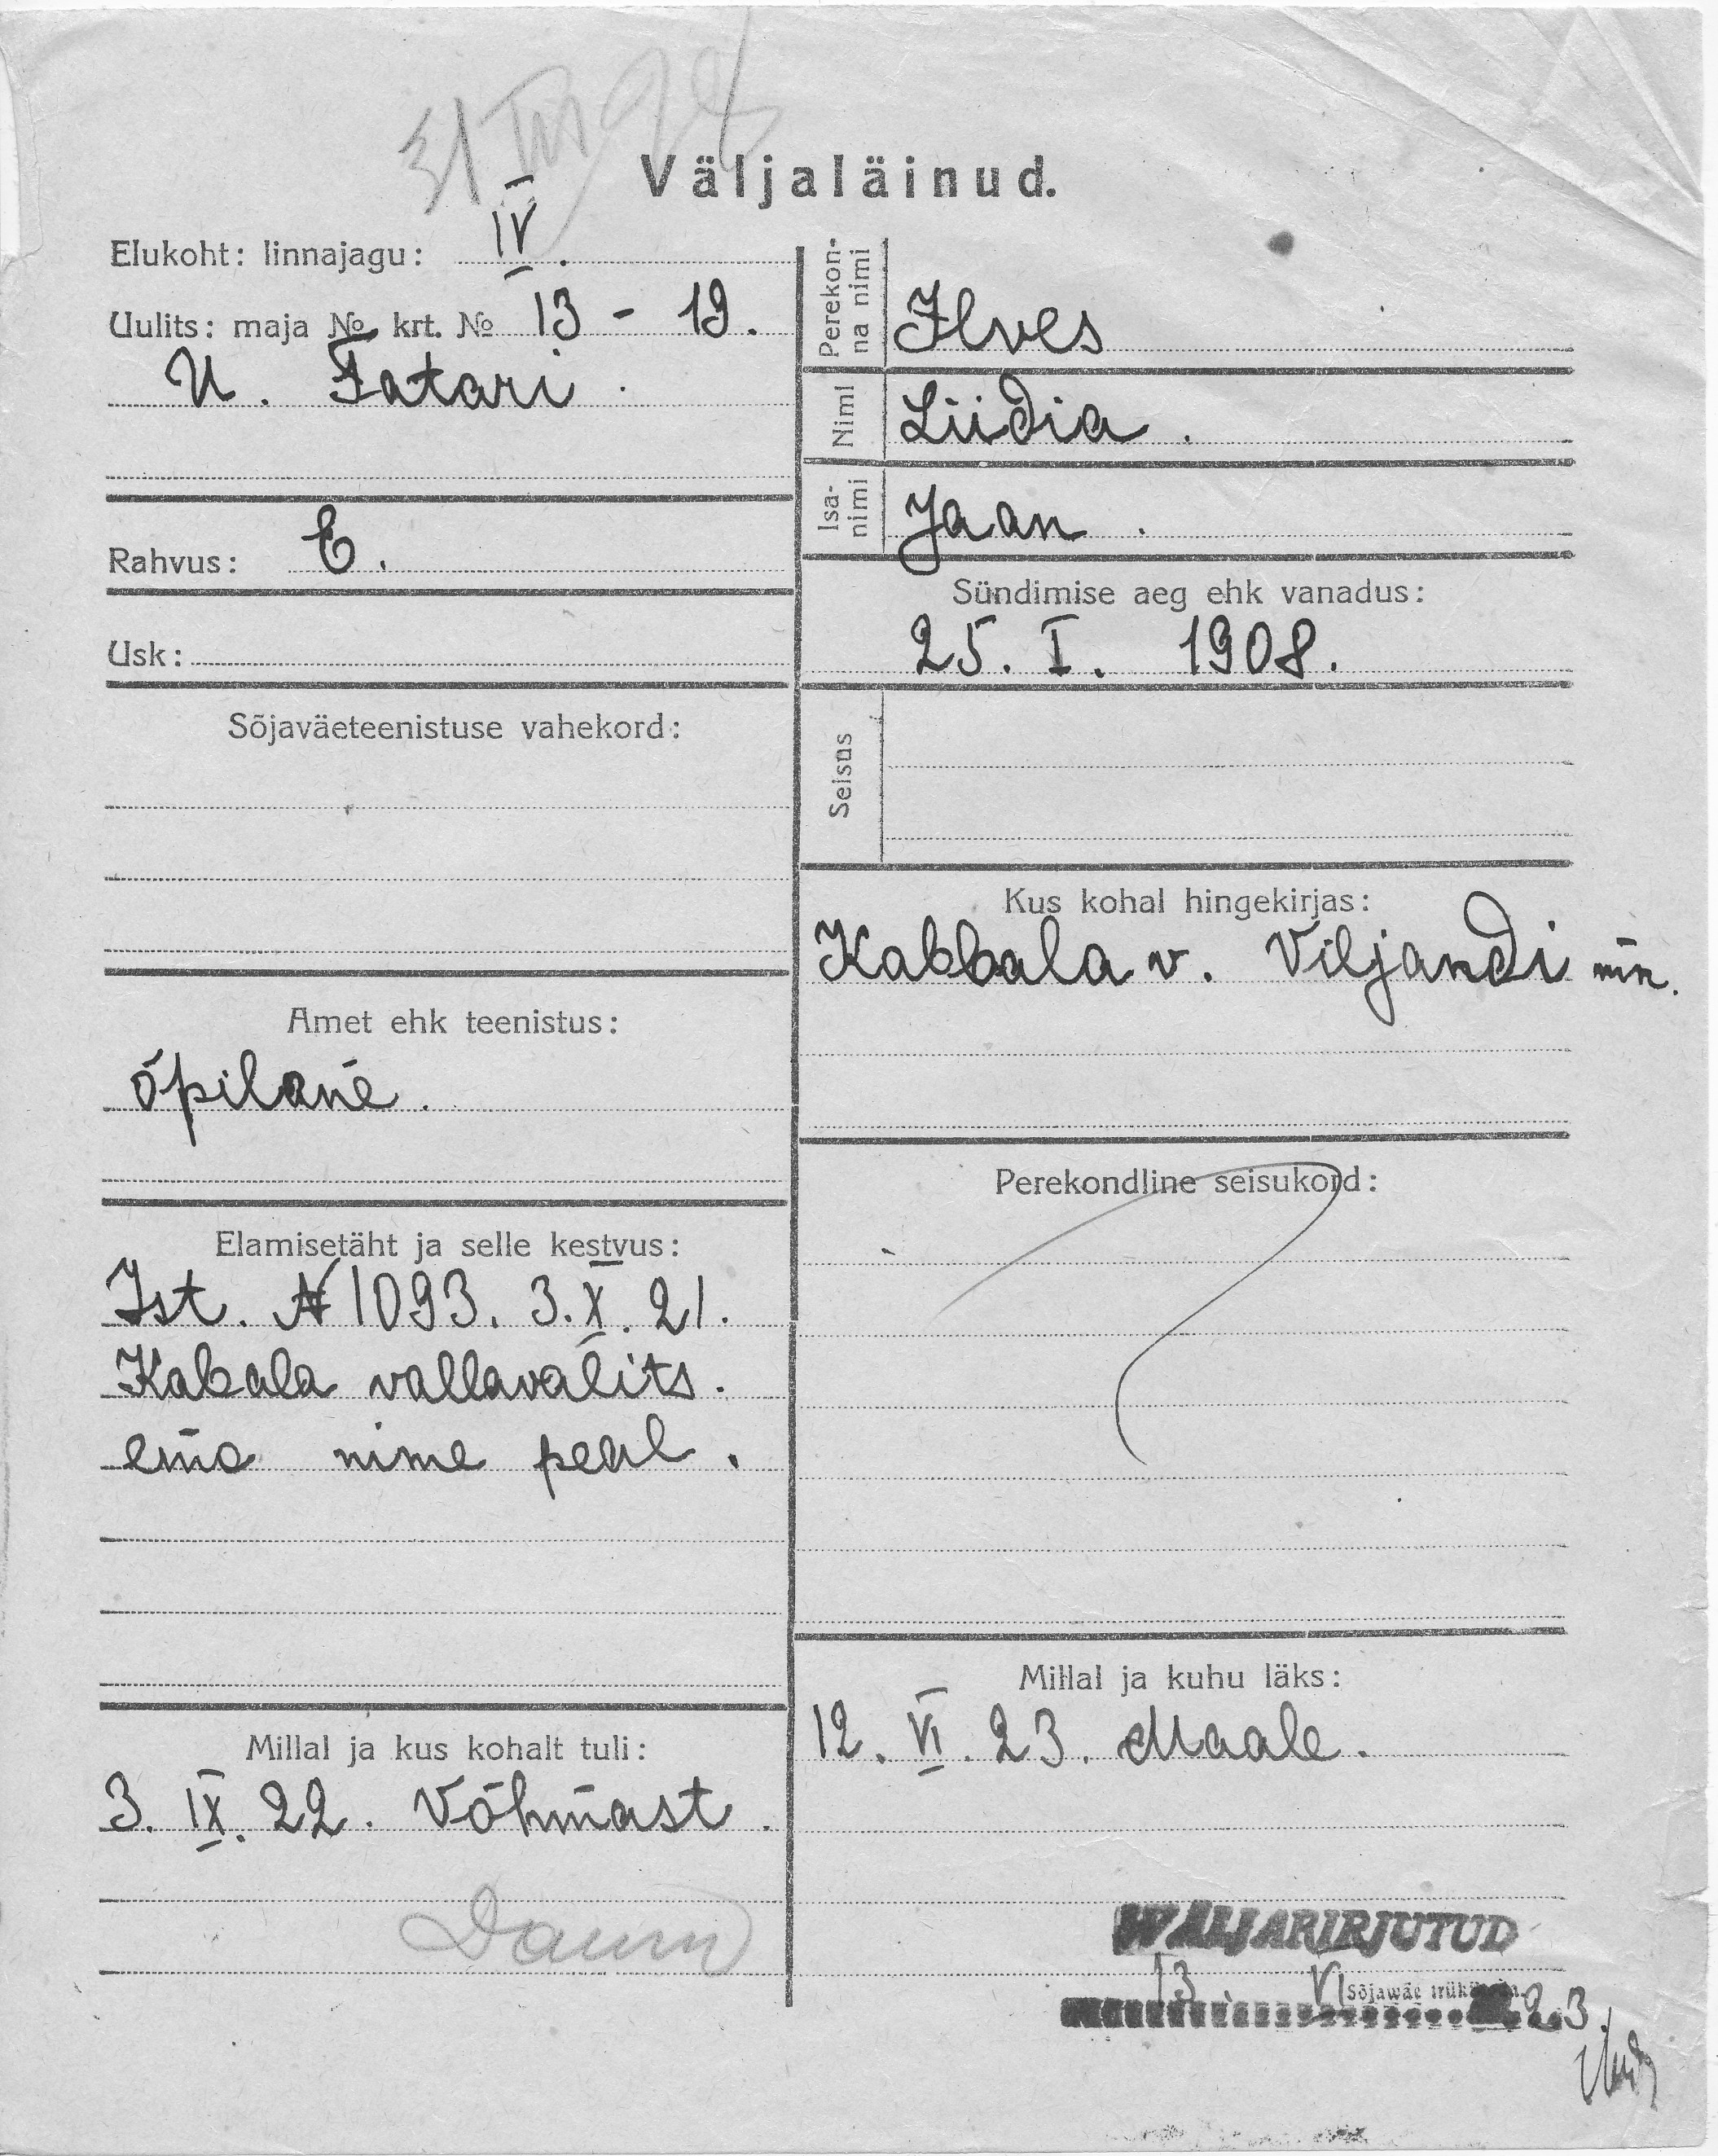 Väljaläinud.
Elukoht: linnajagu: IV.
Uulits: maja № krt. № 13 - 19.
U. Tatari.
Rahvus: E.
Usk:
Sõjaväeteenistuse vahekord:
Amet ehk teenistus:
õpilane.
Elamisetäht ja selle kestvus:
Ist. № 1093. 3.X.21.
Kabala vallavalits.
ema nime peal.
Millal ja kus kohalt tuli:
3. IX. 22. Võhmast.
Perekon-
na nimi Ilves
Nimi Liidia.
Isa-
nimi Jaan.
Sündimise aeg ehk vanadus:
25. I. 1908.
Seisus
Kus kohal hingekirjas:
Kabbala v. Viljandi mk.
Perekondline seisukord:
Millal ja kuhu läks:
12. VI. 23. Maale.
WÄLJAKIRJUTUD
13. VI 23.
Sõjawäe